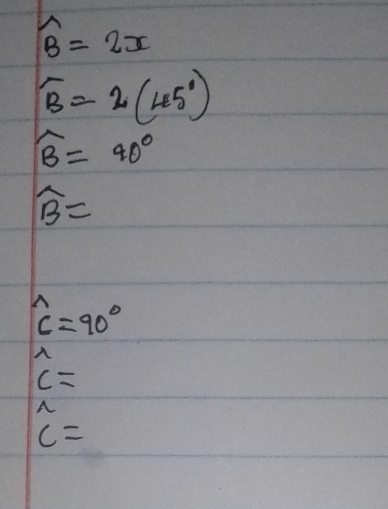 B̂ = 2x
B̂ = 2(45°)
B̂ = 90°
B̂ =
Ĉ = 90°
Ĉ =
Ĉ =